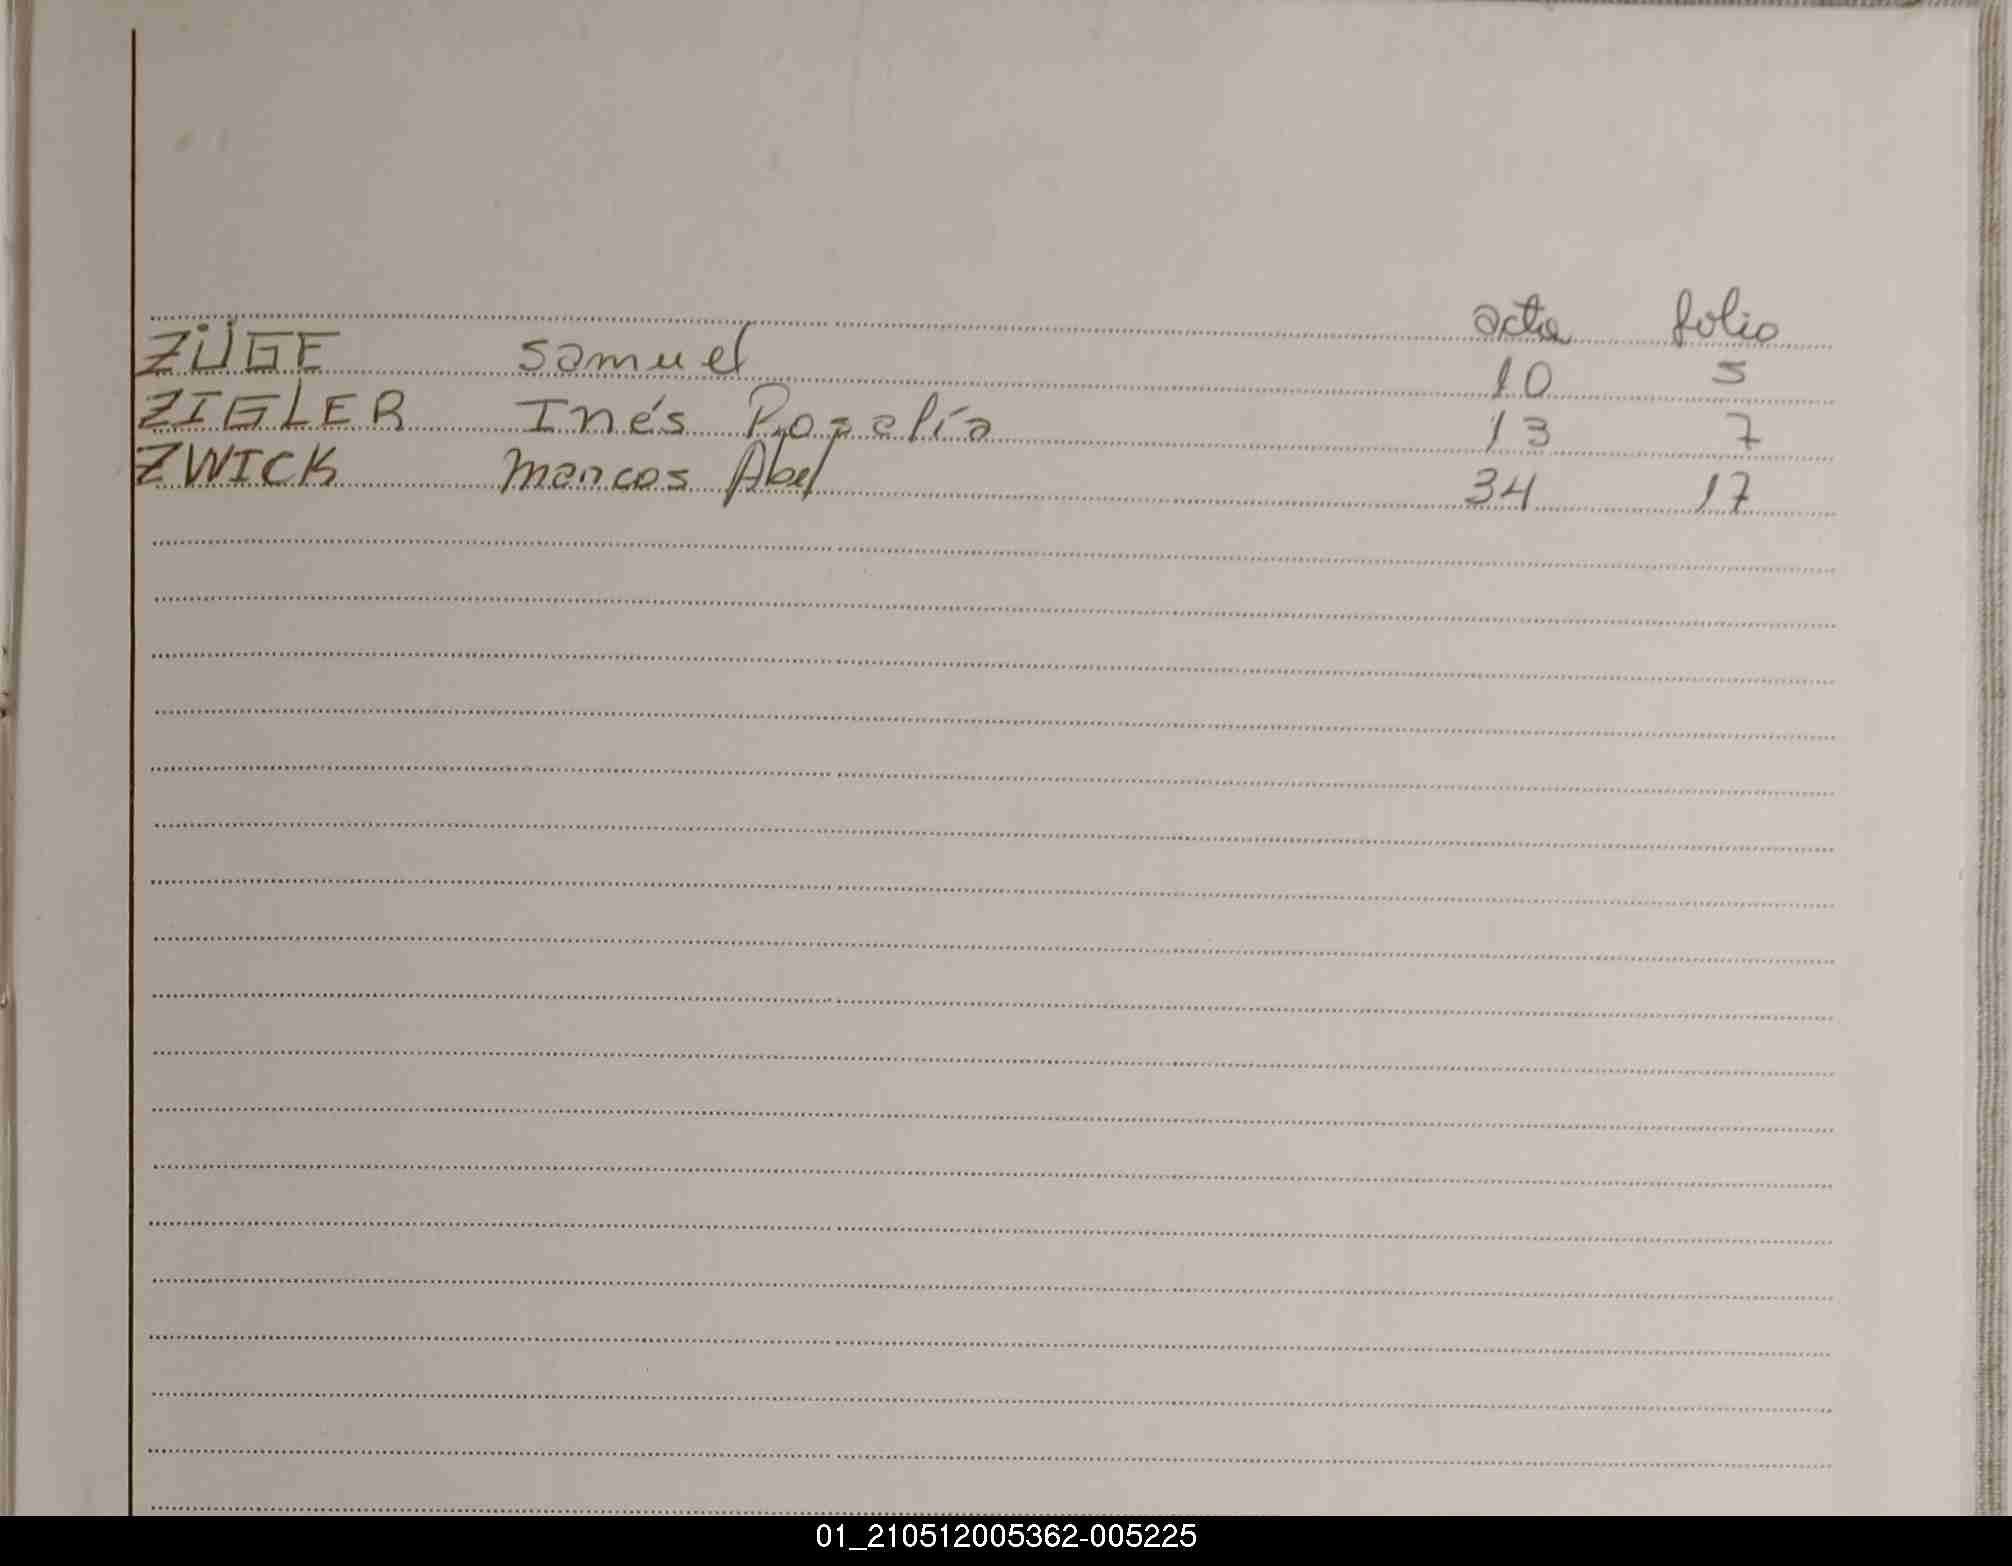 acta folio
ZÜGE Samuel 10 5
ZIGLER Inés Rosalía 13 7
ZWICK Marcos Abel 34 17
01_210512005362-005225